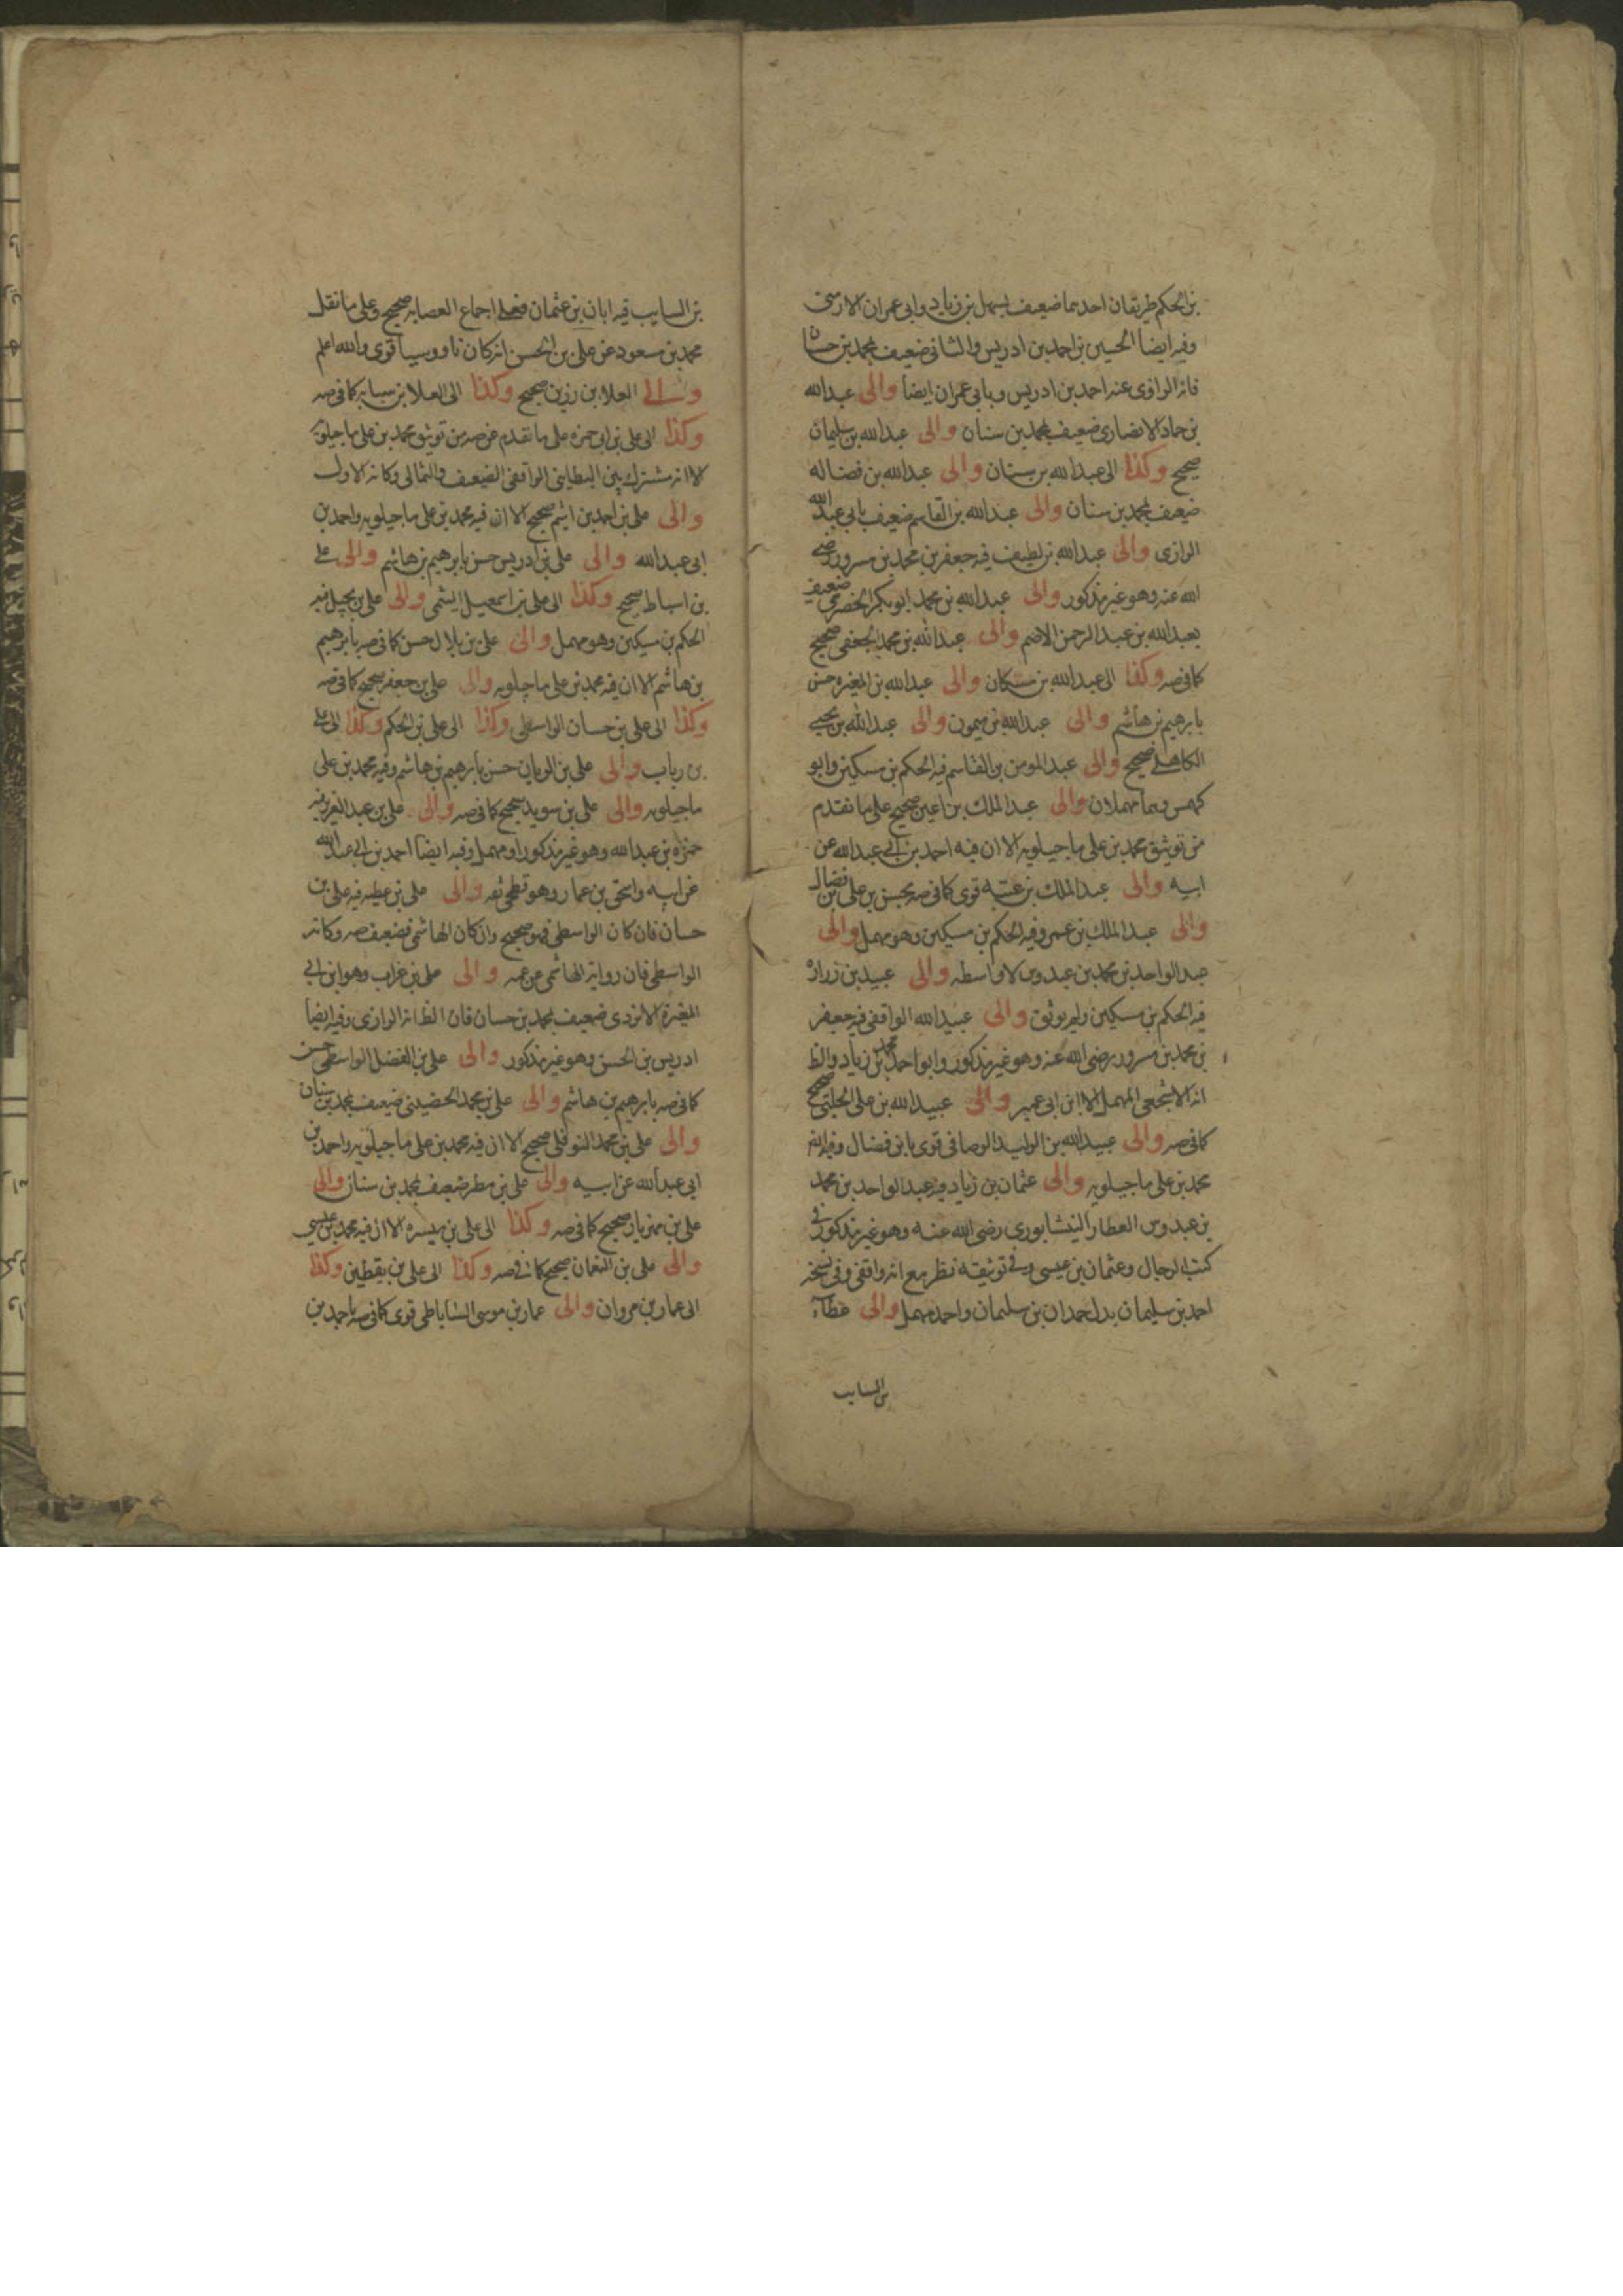 بن الحكم طريقان احدهما ضعيف بسهل بن زياد وابى عمران الارمنى
وفيه ايضا الحسين بن احمد بن ادريس والثانى ضعيف بمحمد بن حسان
فانه الرازى عنه احمد بن ادريس وبابى عمران ايضا والى عبدالله
بن حماد الانصارى ضعيف بمحمد بن سنان والى عبدالله بن سليمان
صحيح وكذا الى عبدالله بن سنان والى عبدالله بن فضاله
ضعيف بمحمد بن سنان والى عبدالله بن القاسم ضعيف بابى عبدالله
الرازى والى عبدالله بن لطيف فيه جعفر بن محمد بن مسرور رضى
الله عنه وهو غير مذكور والى عبدالله بن محمد ابو بكر الحضرمى ضعيف
بعبدالله بن عبدالرحمن الاصم والى عبدالله بن محمد الجعفى صحيح
كما فى صه وكذا الى عبدالله بن مسكان والى عبدالله بن المغيره حسن
بابرهيم بن هاشم والى عبدالله بن ميمون والى عبدالله بن يحيى
الكاهلى صحيح والى عبدالمومن بن القاسم فيه الحكم بن مسكين وابو
كهمس وهما مهملان والى عبدالملك بن اعين صحيح على ما تقدم
من توثيق محمد بن على ماجيلويه الا ان فيه احمد بن ابى عبدالله عن
ابيه والى عبدالملك بن عتبه قوى كما فى صه بحسن بن على بن فضال
والى عبدالملك بن عمرو فيه الحكم بن مسكين وهو مهمل والى
عبدالواحد بن محمد بن عبدوس لا واسطه والى عبيد بن زرارة
فيه الحكم بن مسكين ولم يوثق والى عبيدالله الواقفى فيه جعفر
بن محمد بن مسرور رضى الله عنه وهو غير مذكور وابو احمد محمد بن زياد والظ
انه الاشجعى المهمل الا ابن ابى عمير والى عبيدالله بن على الحلبى صحيح
كما فى صه والى عبيدالله بن الوليد الوصافى قوى بابن فضال وفيه ايضا
محمد بن على ماجيلويه والى عثمان بن زياد فيه عبدالواحد بن محمد
بن عبدوس العطار النيشابورى رضى الله عنه وهو غير مذكور فى
كتب الرجال وعثمان بن عيسى وفى توثيقه نظر مع انه واقفى وفى نسخه
احمد بن سليمان بدل حمدان بن سليمان واحمد مهمل والى عطاء
بن السايب
بن السايب فيه ابان بن عثمان فعلى اجماع العصابه صحيح وعلى ما نقل
محمد بن مسعود عن على بن الحسن انه كان ناووسيا قوى والله اعلم
والى العلا بن رزين صحيح وكذا الى العلا بن سيابه كما فى صه
وكذا الى على بن ابى حمزه على ما تقدم عن صه من توثيق محمد بن على ماجيلويه
الا انه مشترك بين البطاينى الواقفى الضعيف والثمالى وكانه الاول
والى على بن احمد بن اشيم صحيح الا ان فيه محمد بن على ماجيلويه واحمد بن
ابى عبدالله والى على بن ادريس حسن بابرهيم بن هاشم والى على
بن اسباط صحيح وكذا الى على بن اسمعيل الميثمى والى على بن بجيل فيه
الحكم بن مسكين وهو مهمل والى على بن بلال حسن كما فى صه بابرهيم
بن هاشم الا ان فيه محمد بن على ماجيلويه والى على بن جعفر صحيح كما فى صه
وكذا الى على بن حسان الواسطى وكذا الى على بن الحكم وكذا الى على
بن رياب والى على بن الريان حسن بابرهيم بن هاشم وفيه محمد بن على
ماجيلويه والى على بن سويد صحيح كما فى صه والى على بن عبدالعزيز فيه
حمزه بن عبدالله وهو غير مذكور او مهمل وفيه ايضا احمد بن ابى عبدالله
عن ابيه واسحق بن عمار وهو فطحى ثقه والى على بن عطيه فيه على بن
حسان فان كان الواسطى فهو صحيح وان كان الهاشمى فضعيف صه وكانه
الواسطى فان رواية الهاشمى عن عمه والى على بن غراب وهو ابن ابى
المغيرة الازدى ضعيف بمحمد بن حسان فان الظ انه الرازى وفيه ايضا
ادريس بن الحسن وهو غير مذكور والى على بن الفضل الواسطى حسن
كما فى صه بابرهيم بن هاشم والى على بن محمد الحضينى ضعيف بمحمد بن سنان
والى على بن محمد النوفلى صحيح الا ان فيه محمد بن على ماجيلويه واحمد بن
ابى عبدالله عن ابيه والى على بن مطر ضعيف بمحمد بن سنان والى
على بن مهزيار صحيح كما فى صه وكذا الى على بن ميسره الا ان فيه محمد بن عيسى
والى على بن النعمان صحيح كما فى صه وكذا الى على بن يقطين وكذا
الى عمار بن مروان والى عمار بن موسى الساباطى قوى كما فى صه باحمد بن